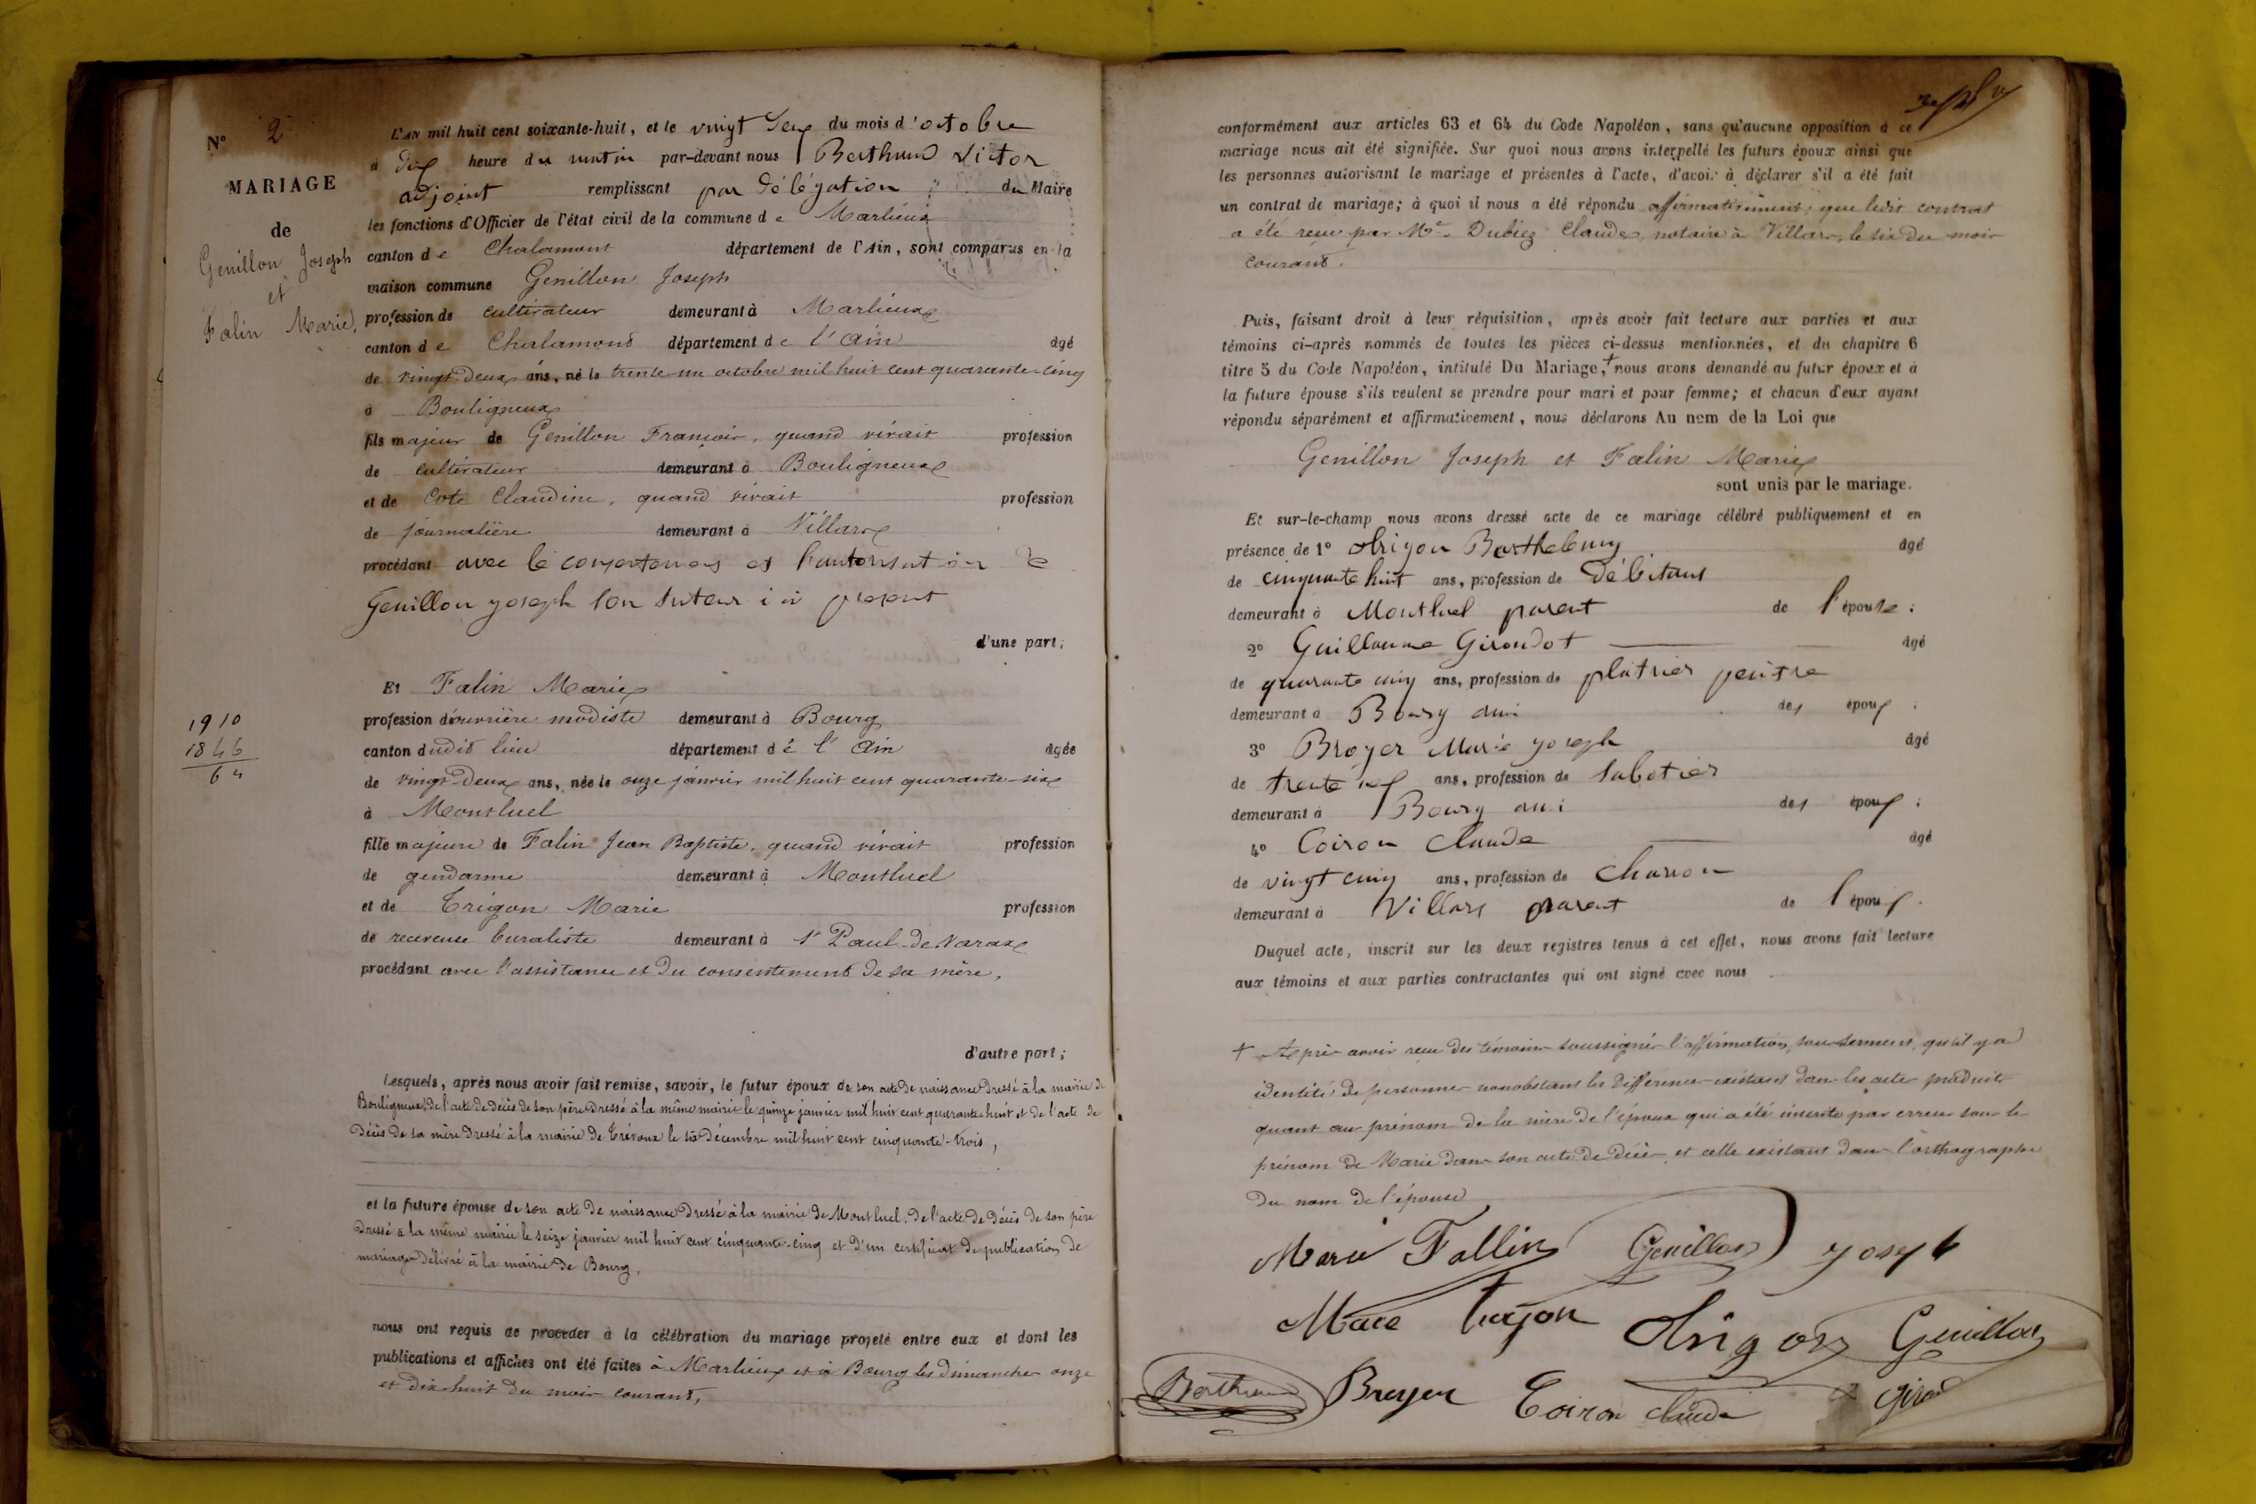 N° 2
MARIAGE
de
Genillon Joseph
et
Falin Marie.
1910
1846
64
L'AN mil huit cent soixante-huit, et le vingt du mois d'octobre
à dix heure du matin par-devant nous Berthaud Victor
adjoint remplissant par délégation du Maire
les fonctions d'Officier de l'état civil de la commune de Marlieux
canton de Chalamont département de l'Ain, sont comparus en la
maison commune Genillon Joseph
profession de cultivateur demeurant à Marlieux
canton de Chalamont département de l'Ain âgé
de vingt-deux ans, né le trente-un octobre mil huit cent quarante-cinq
à Bouligneux
fils majeur de Genillon François, quand vivait profession
de cultivateur demeurant à Bouligneux
et de Cote Claudine, quand vivait profession
de journalière demeurant à Villars
procédant avec le consentement et l'autorisation de
Genillon joseph son tuteur ici present
d'une part;
Et Falin Marie
profession d'ouvrière modiste demeurant à Bourg
canton dudit lieu département de l'Ain âgée
de vingt-deux ans, née le onze janvier mil huit cent quarante-six
à Montluel
fille majeure de Falin Jean Baptiste, quand vivait profession
de gendarme demeurant à Montluel
et de Trigon Marie profession
de receveuse buraliste demeurant à St Paul-de-Varax
procédant avec l'assistance et du consentement de sa mère,
d'autre part;
Lesquels, après nous avoir fait remise, savoir, le futur époux de son acte de naissance dressé à la mairie de
Bouligneux, de l'acte de décès de son père dressé à la même mairie le quinze janvier mil huit cent quarante-huit et de l'acte de
décès de sa mère dressé à la mairie de Trévoux le six décembre mil huit cent cinquante-trois,
et la future épouse de son acte de naissance dressé à la mairie de Montluel, de l'acte de décès de son père
dressé à la même mairie le seize janvier mil huit cent cinquante-cinq et d'un certificat de publication de
mariage délivré à la mairie de Bourg,
nous ont requis de procéder à la célébration du mariage projeté entre eux et dont les
publications et affiches ont été faites à Marlieux et à Bourg les dimanches onze
et dix-huit du mois courant,
conformément aux articles 63 et 64 du Code Napoléon, sans qu'aucune opposition à ce
mariage nous ait été signifiée. Sur quoi nous avons interpellé les futurs époux ainsi que
les personnes autorisant le mariage et présentes à l'acte, d'avoir à déclarer s'il a été fait
un contrat de mariage; à quoi il nous a été répondu affirmativement, que ledit contrat
a été reçu par Me Dubiez Claude, notaire à Villars, le six du mois
courant.
Puis, faisant droit à leur réquisition, après avoir fait lecture aux parties et aux
témoins ci-après nommés de toutes les pièces ci-dessus mentionnées, et du chapitre 6
titre 5 du Code Napoléon, intitulé Du Mariage, + nous avons demandé au futur époux et à
la future épouse s'ils veulent se prendre pour mari et pour femme; et chacun d'eux ayant
répondu séparément et affirmativement, nous déclarons Au nom de la Loi que
Genillon Joseph et Falin Marie
sont unis par le mariage.
Et sur-le-champ nous avons dressé acte de ce mariage célébré publiquement et en
présence de 1° Trigon Barthelemy âgé
de cinquante huit ans, profession de débitant
demeurant à Montluel parent de l'épouse;
2° Guillaume Giroudot âgé
de quarante cinq ans, profession de platrier peintre
demeurant à Bourg ami des époux;
3° Broyer Marie joseph âgé
de trente six ans, profession de sabotier
demeurant à Bourg ami des époux;
4° Coiron Claude âgé
de vingt cinq ans, profession de charron
demeurant à Villars parent de l'époux.
Duquel acte, inscrit sur les deux registres tenus à cet effet, nous avons fait lecture
aux témoins et aux parties contractantes qui ont signé avec nous
+ Après avoir reçu des témoins soussignés l'affirmation, sous serment, qu'il y a
identité de personnes nonobstant les différences existant dans les actes produits
quant au prénom de la mère de l'époux qui a été inscrite par erreur sous le
prénom de Marie dans son acte de décès et celle existant dans l'orthographe
du nom de l'épouse
Marie Fallin Genillon Joseph
Marie Trigon Trigon Genillon
Berthaud Broyer Coiron Claude